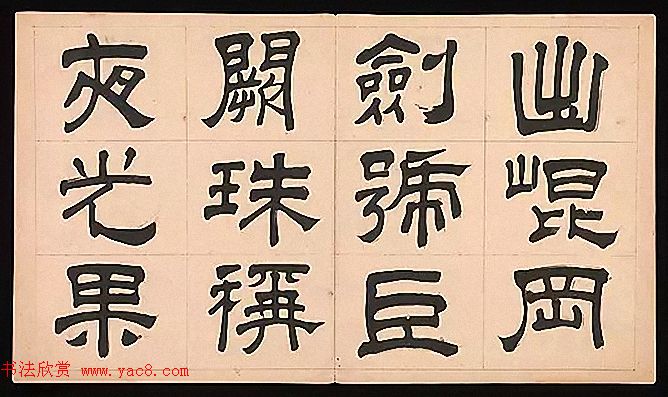 出崐岡
劍號臣
闕珠稱
夜光果
书法欣赏 www.yac8.com